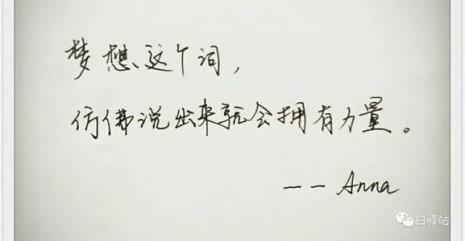 梦想这个词，
仿佛说出来就会拥有力量。
-- Anna
白驿站